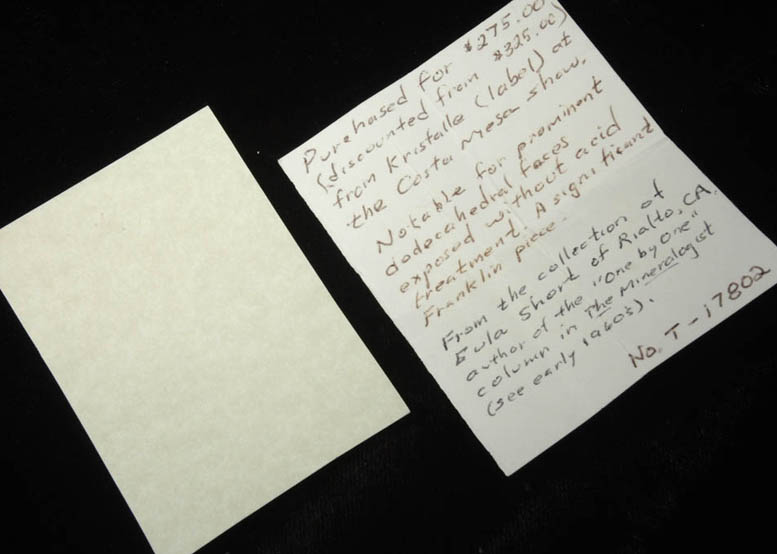 Purchased for $275.00
(discounted from $325.00)
from Kristalle (label) at
the Costa Mesa show.
Notable for prominent
dodecahedral faces
exposed without acid
treatment. A significant
Franklin piece.
From the collection of
Eula Short of Rialto, CA,
author of the "One by One"
column in The Mineralogist
(see early 1960s).
No. T-17802